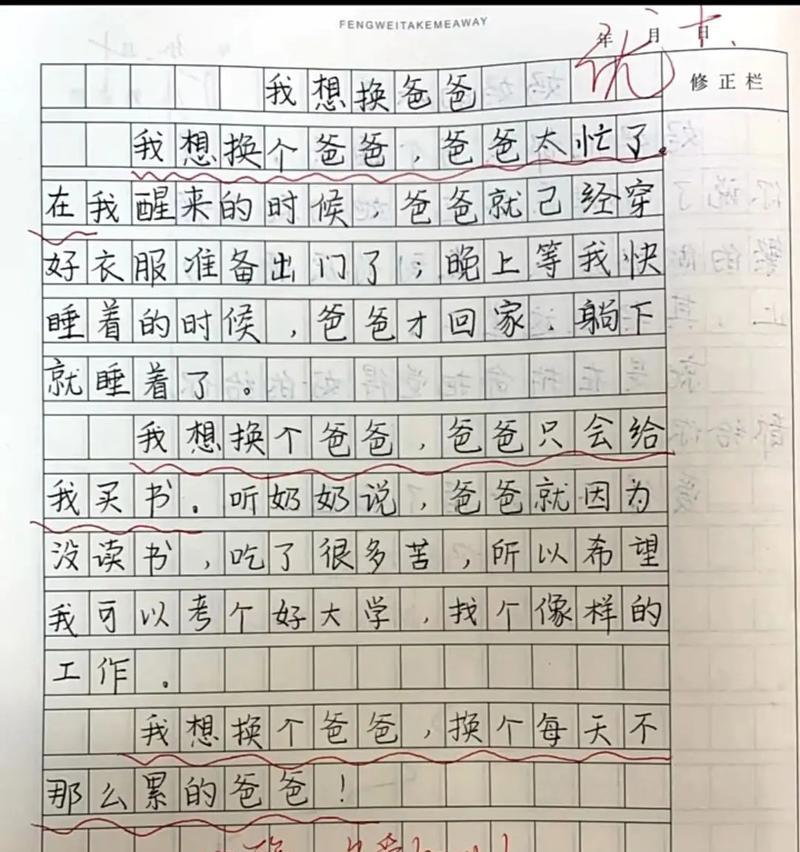 FENGWEITAKEMEAWAY
年 月 日
优十、
修正栏
我想换爸爸
我想换个爸爸，爸爸太忙了。
在我醒来的时候，爸爸就己经穿
好衣服准备出门了；晚上等我快
睡着的时候，爸爸才回家，躺下
就睡着了。
我想换个爸爸，爸爸只会给
我买书。听奶奶说，爸爸就因为
没读书，吃了很多苦，所以希望
我可以考个好大学，找个像样的
工作。
我想换个爸爸，换个每天不
那么累的爸爸！